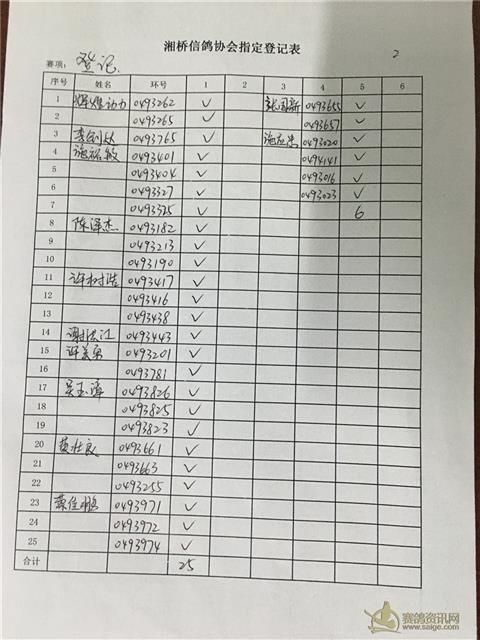 湘桥信鸽协会指定登记表
赛项: 登记 2
序号 姓名 环号 1 2 3 4 5 6
1 辉煌动力 0493262 ✓ 0493655 ✓
2 0493265 ✓ 0493657 ✓
3 李剑达 0493765 ✓ 0493020 ✓
4 施裕敏 0493401 ✓ 0494141 ✓
5 0493404 ✓ 0493016 ✓
6 0493327 ✓ 0493023 ✓
7 0493325 ✓ 6
8 陈泽杰 0493182 ✓
9 0493213 ✓
10 0493190 ✓
11 许树浩 0493417 ✓
12 0493416 ✓
13 0493438 ✓
14 谢洪江 0493443 ✓
15 许美勇 0493201 ✓
16 0493781 ✓
17 吴玉泽 0493826 ✓
18 0493825 ✓
19 0493823 ✓
20 黄壮良 0493661 ✓
21 0493663 ✓
22 0493255 ✓
23 蔡佳鹏 0493971 ✓
24 0493972 ✓
25 0493974 ✓
合计 25
赛鸽资讯网
www.saige.com